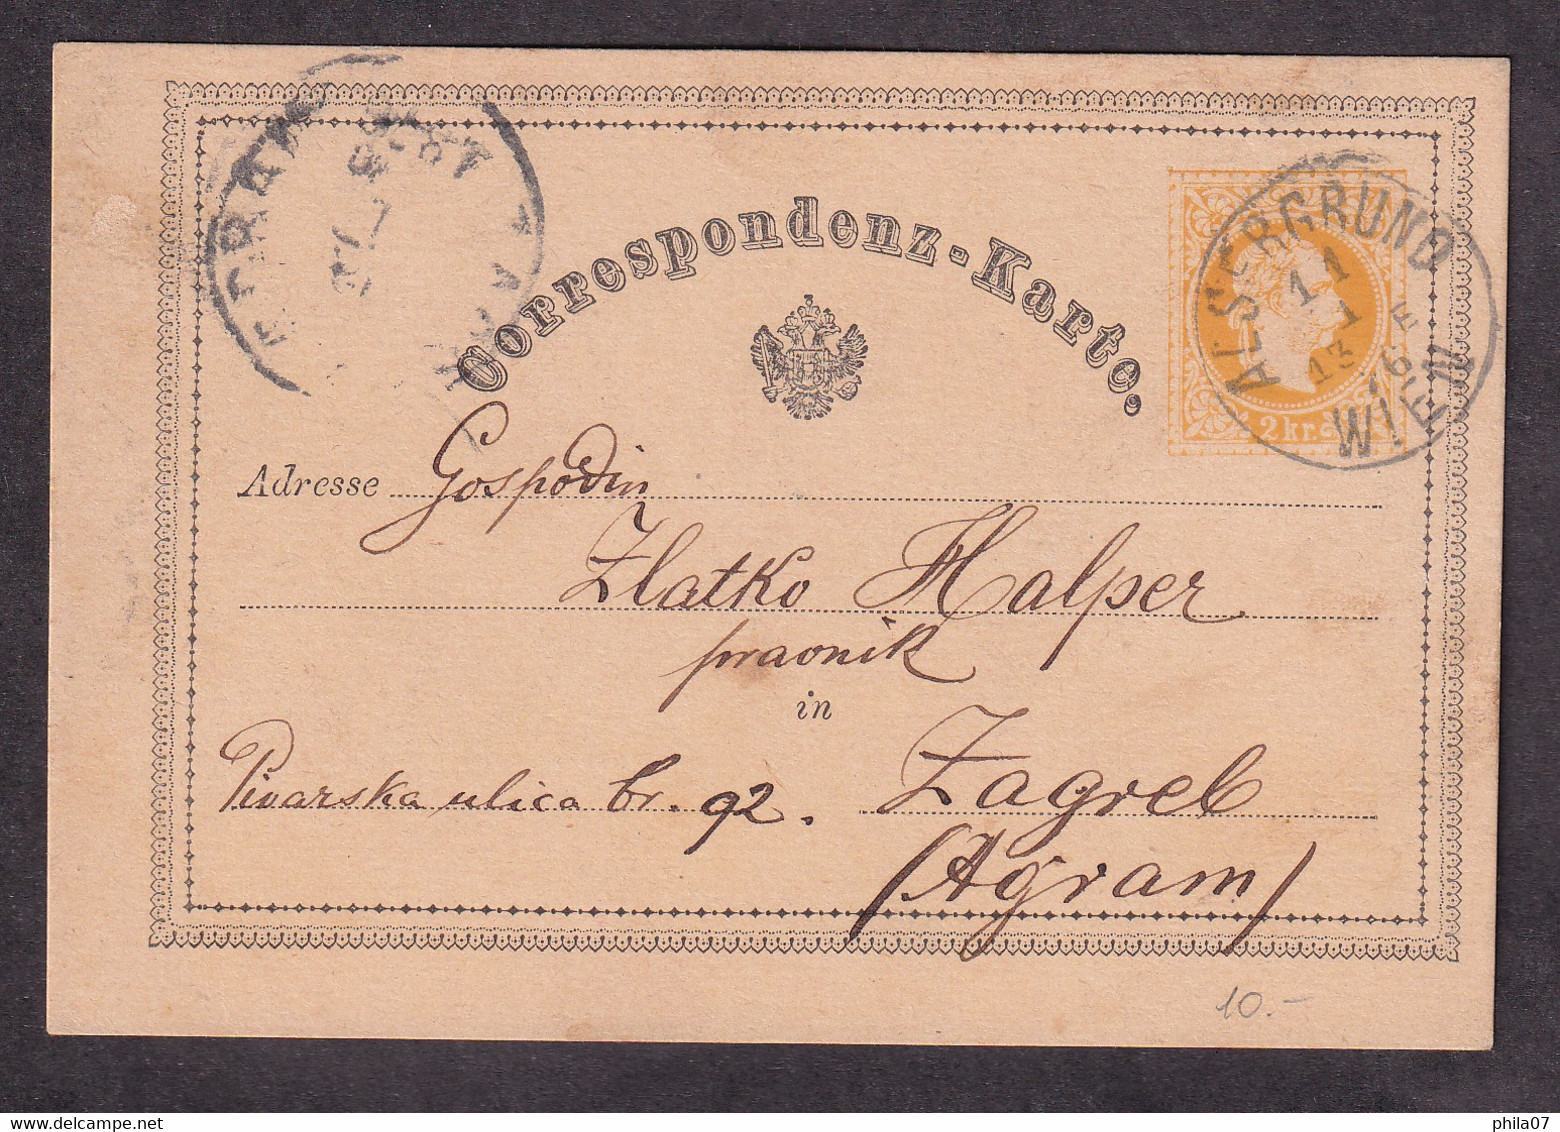 Correspondenz-Karte.
ALSERGRUND
11
1
13
76
E
WIEN
2 kr.
Adresse Gospodin
Zlatko Halper
pravnik
in
Pivarska ulica br. 92. Zagreb
(Agram)
10.-
phila07